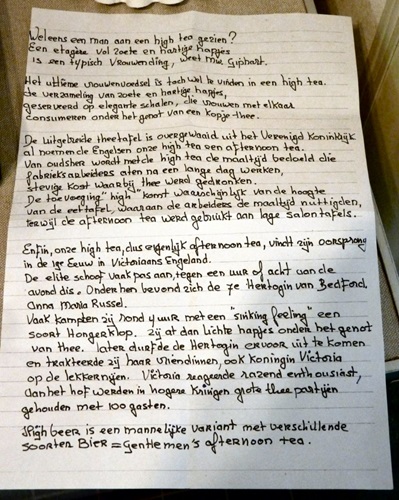 Weleens een man aan een high tea gezien?
Een etagère vol zoete en hartige hapjes
is een typisch vrouwending, weet Mw. Giphart.
Het ultieme vrouwenvoedsel is toch wel te vinden in een high tea.
de verzameling van zoete en hartige hapjes,
geserveerd op elegante schalen, die vrouwen met elkaar
consumeren onder het genot van een kopje thee.
De uitgebreide theetafel is overgewaaid uit het Verenigd Koninkrijk
al noemen de Engelsen onze high tea een afternoon tea.
Van oudsher wordt met de high tea de maaltijd bedoeld die
fabrieksarbeiders aten na een lange dag werken,
stevige kost waarbij thee werd gedronken.
De toevoeging "high" komt waarschijnlijk van de hoogte
van de eettafel, waaraan de arbeiders de maaltijd nuttigden,
terwijl de afternoon tea werd gebruikt aan lage salontafels.
Enfin, onze high tea, dus eigenlijk afternoon tea, vindt zijn oorsprong
in de 19e Eeuw in Victoriaans Engeland.
De elite schoof vaak pas aan, tegen een uur of acht aan de
avond dis. Onder hen bevond zich de 7e Hertogin van Bedford.
Anna Maria Russel.
Vaak kampten zij rond 4 uur met een "sinking feeling" een
soort Honger Klop. Zij at dan lichte hapjes onder het genot
van thee. later durfde de Hertogin ervoor uit te komen
en trakteerde zij haar vriendinnen, ook koningin Victoria
op de lekkernijen. Victoria reageerde razend enthousiast,
aan het hof werden in hogere kringen grote thee partijen
gehouden met 100 gasten.
High beer is een mannelijke variant met verschillende
soorten Bier = gentlemen's afternoon tea.